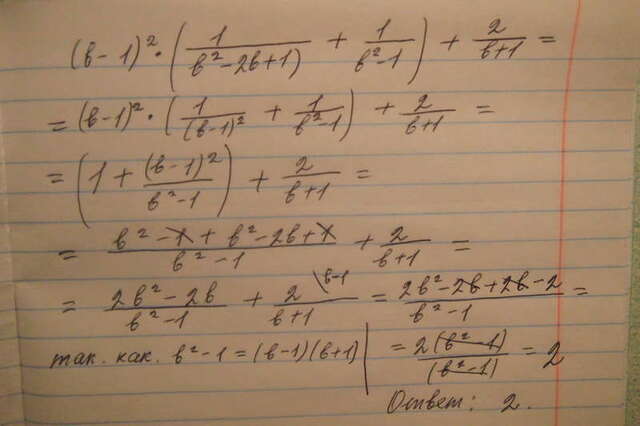 (b-1)² · (1/(b²-2b+1) + 1/(b²-1)) + 2/(b+1) =
= (b-1)² · (1/(b-1)² + 1/(b²-1)) + 2/(b+1) =
= (1 + (b-1)²/(b²-1)) + 2/(b+1) =
= (b²-1+b²-2b+1)/(b²-1) + 2/(b+1) =
= (2b²-2b)/(b²-1) + 2/(b+1) \b-1 = (2b²-2b+2b-2)/(b²-1) =
так. как. b²-1=(b-1)(b+1) | = 2(b²-1)/(b²-1) = 2
Ответ: 2.